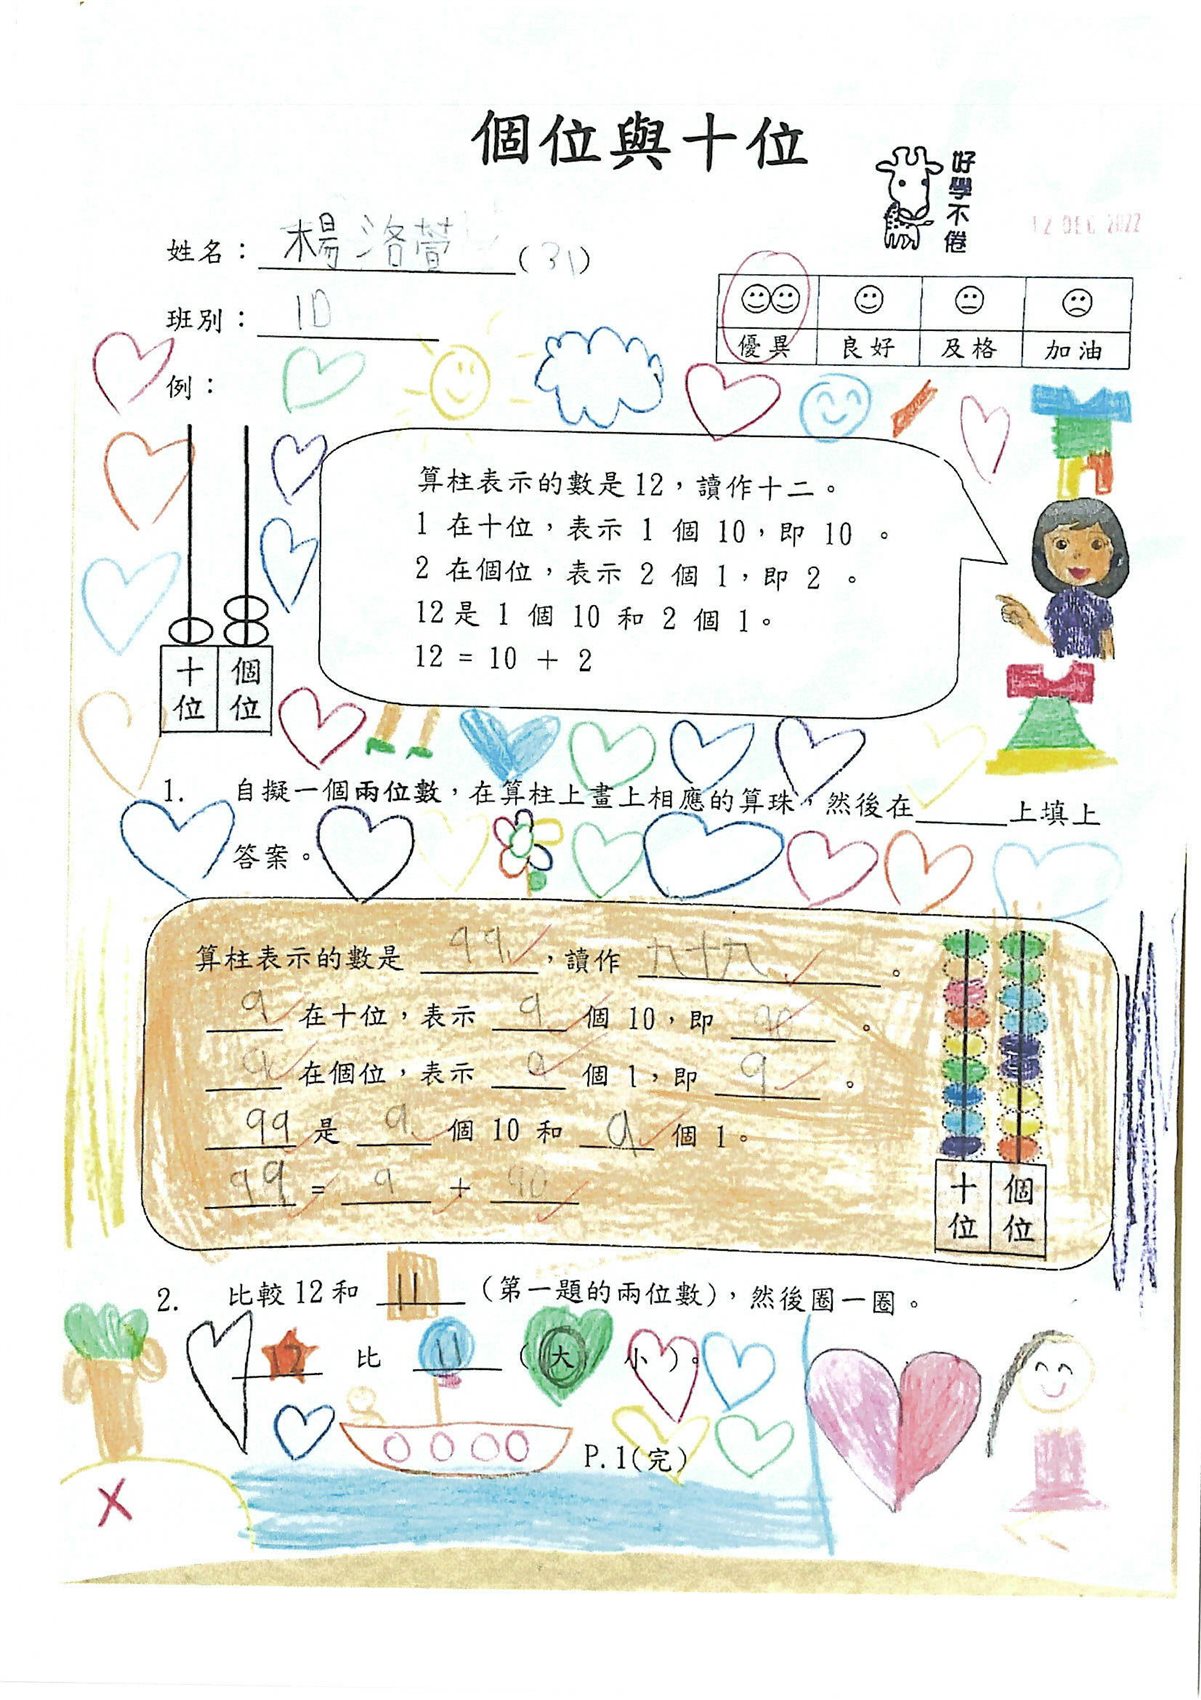 個位與十位
好學不倦
12 DEC 2022
姓名：楊洛萱(31)
班別：1D
優異 良好 及格 加油
例：
算柱表示的數是12，讀作十二。
1 在十位，表示 1 個 10，即 10 。
2 在個位，表示 2 個 1，即 2 。
12是 1 個 10 和 2 個 1。
12 = 10 + 2
十位 個位
1. 自擬一個兩位數，在算柱上畫上相應的算珠，然後在______上填上
答案。
算柱表示的數是 99，讀作 九十九。
9 在十位，表示 9 個 10，即 90 。
9 在個位，表示 9 個 1，即 9 。
99 是 9 個 10 和 9 個 1。
99 = 9 + 90
十位 個位
2. 比較12和 11 (第一題的兩位數)，然後圈一圈。
12 比 11 (大 小)。
P.1(完)
X